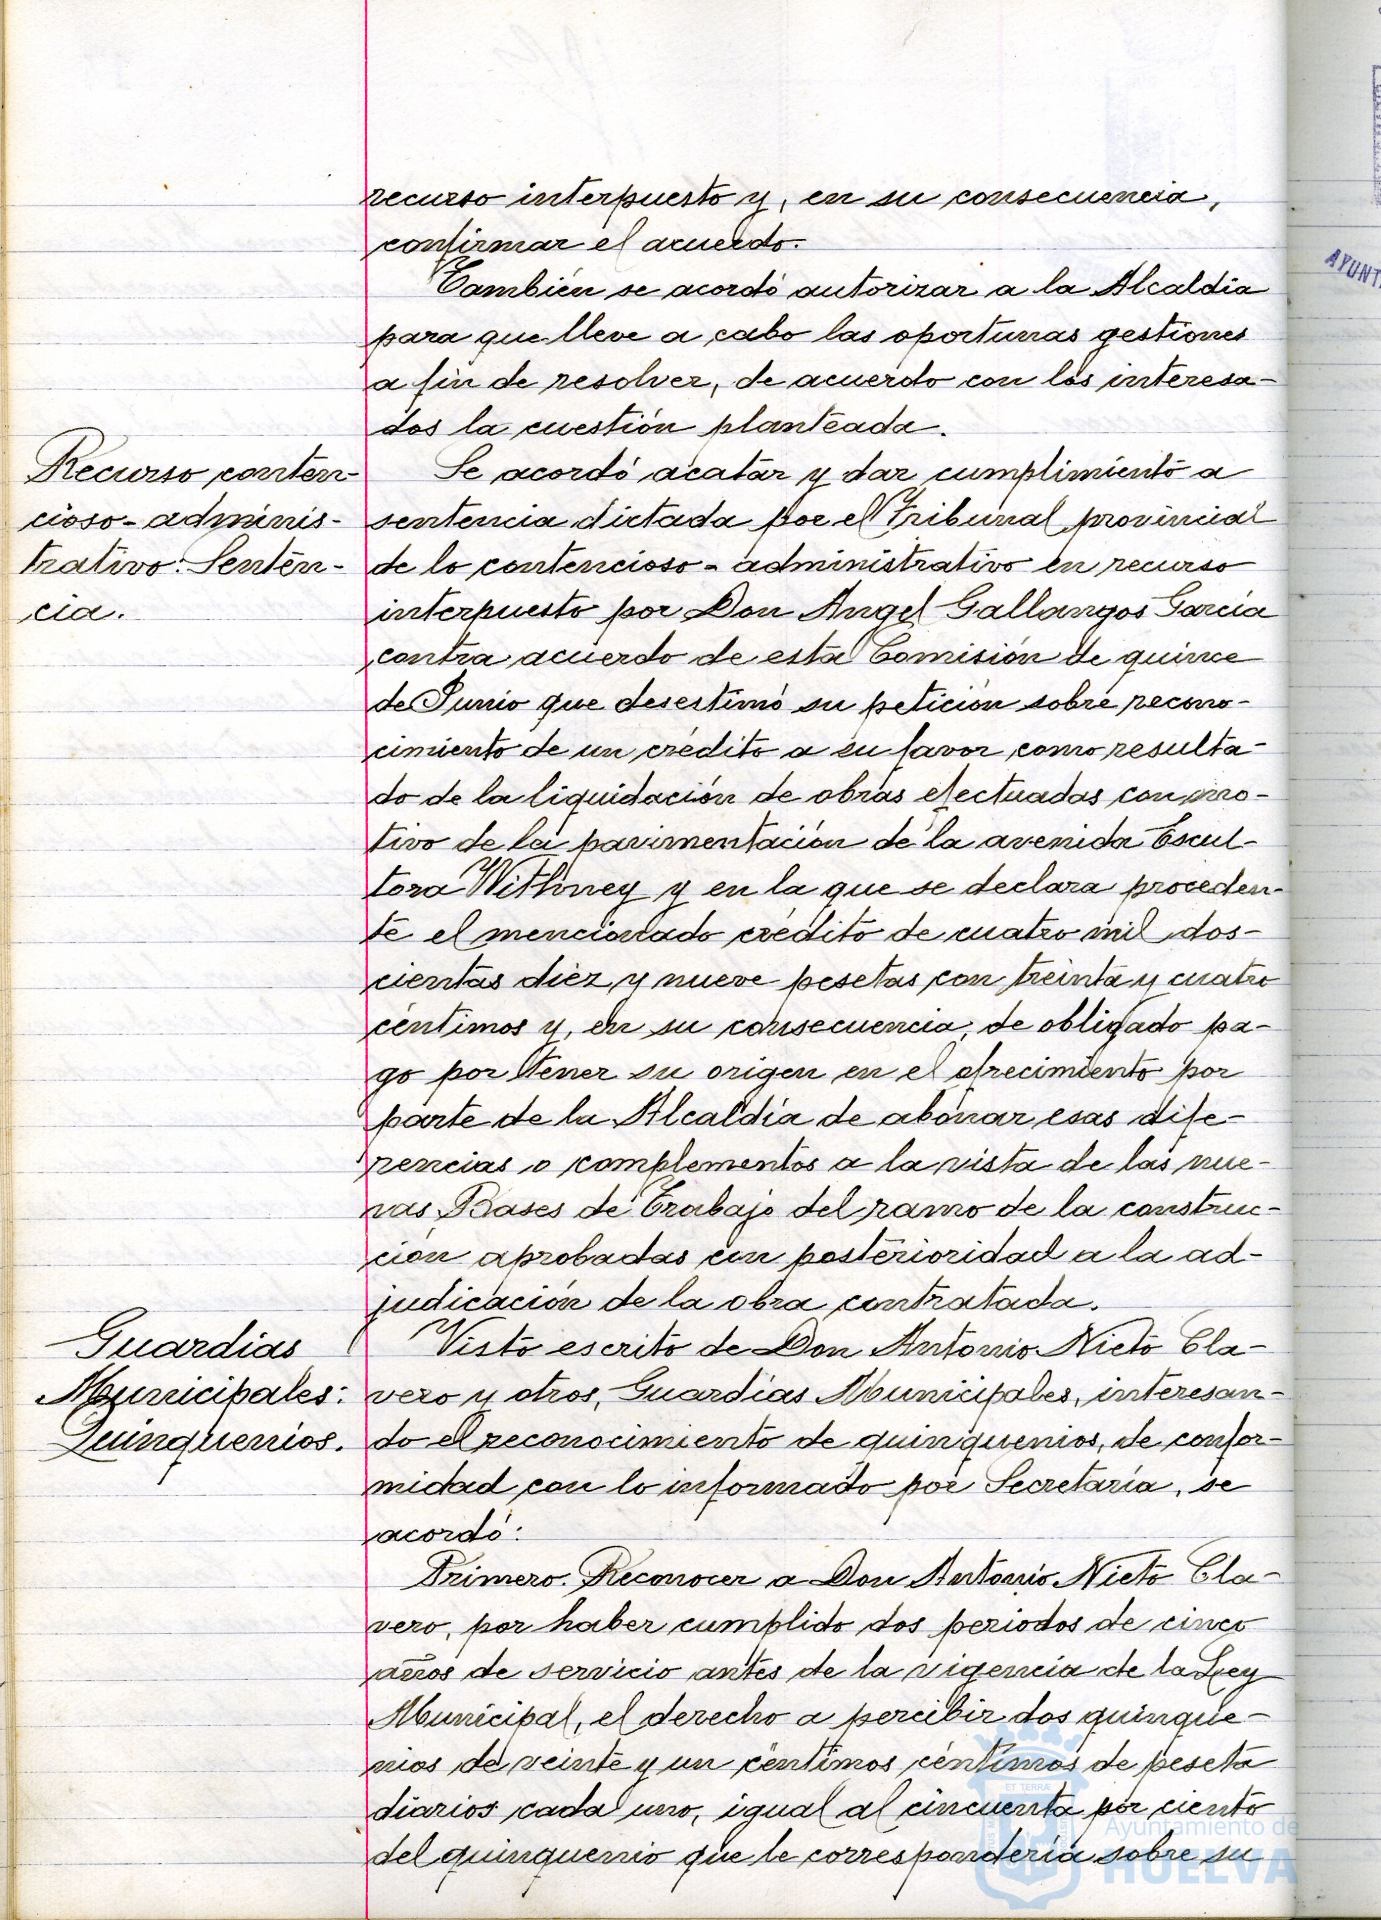 recurso interpuesto y, en su consecuencia,
confirmar el acuerdo.
También se acordó autorizar a la Alcaldia
para que lleve a cabo las oportunas gestiones
a fin de resolver, de acuerdo con los interesa-
dos la cuestión planteada.
Recurso conten-
cioso-adminis-
trativo: Senten-
cia.
Se acordó acatar y dar cumplimiento a
sentencia dictada por el Tribunal provincial
de lo contencioso-administrativo en recurso
interpuesto por Don Angel Gallangos García
contra acuerdo de esta Comisión de quince
de Junio que desestimó su petición sobre recono-
cimiento de un crédito a su favor como resulta-
do de la liquidación de obras efectuadas con mo-
tivo de la pavimentación de la avenida Escul-
tora Withney y en la que se declara proceden-
te el mencionado crédito de cuatro mil dos-
cientas diez y nueve pesetas con treinta y cuatro
céntimos y, en su consecuencia, de obligado pa-
go por tener su origen en el ofrecimiento por
parte de la Alcaldía de abonar esas dife-
rencias o complementos a la vista de las nue-
vas Bases de Trabajo del ramo de la construc-
ción aprobadas con posterioridad a la ad-
judicación de la obra contratada.
Guardias
Municipales:
Quinquenios.
Visto escrito de Don Antonio Nieto Cla-
vero y otros, Guardias Municipales, interesan-
do el reconocimiento de quinquenios, de confor-
midad con lo informado por Secretaría, se
acordó:
Primero. Reconocer a Don Antonio Nieto Cla-
vero, por haber cumplido dos periodos de cinco
años de servicio antes de la vigencia de la Ley
Municipal, el derecho a percibir dos quinque-
nios de veinte y un céntimos céntimos de peseta
diarios cada uno, igual al cincuenta por ciento
del quinquenio que le correspondería sobre su
AYUNT
Ayuntamiento de
HUELVA